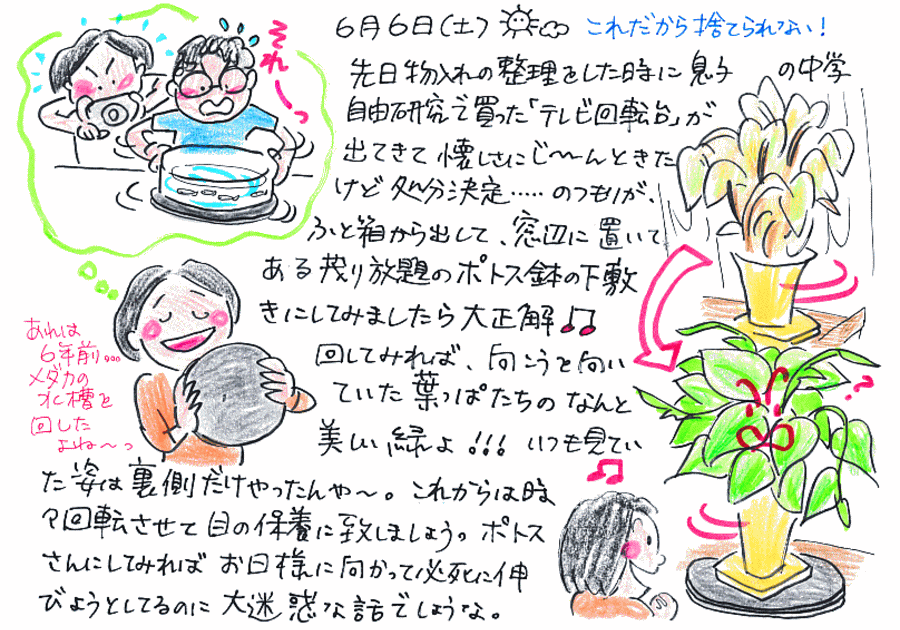 6月6日(土)
これだから捨てられない!
先日物入れの整理をした時に息子 の中学
自由研究で買った「テレビ回転台」が
出てきて懐しさにじ〜〜んときた
けど処分決定……のつもりが、
ふと箱から出して、窓辺に置いて
ある茂り放題のポトス鉢の下敷
きにしてみましたら大正解♫
回してみれば、向こうを向い
ていた葉っぱたちのなんと
美しい緑よ!!!いつも見てい
た姿は裏側だけやったんや〜。これからは時
々回転させて目の保養に致しましょう。ポトス
さんにしてみればお日様に向かって必死に伸
びようとしてるのに大迷惑な話でしょうな。
それーっ
あれは
6年前…
メダカの
水槽を
回した
よね〜っ
?